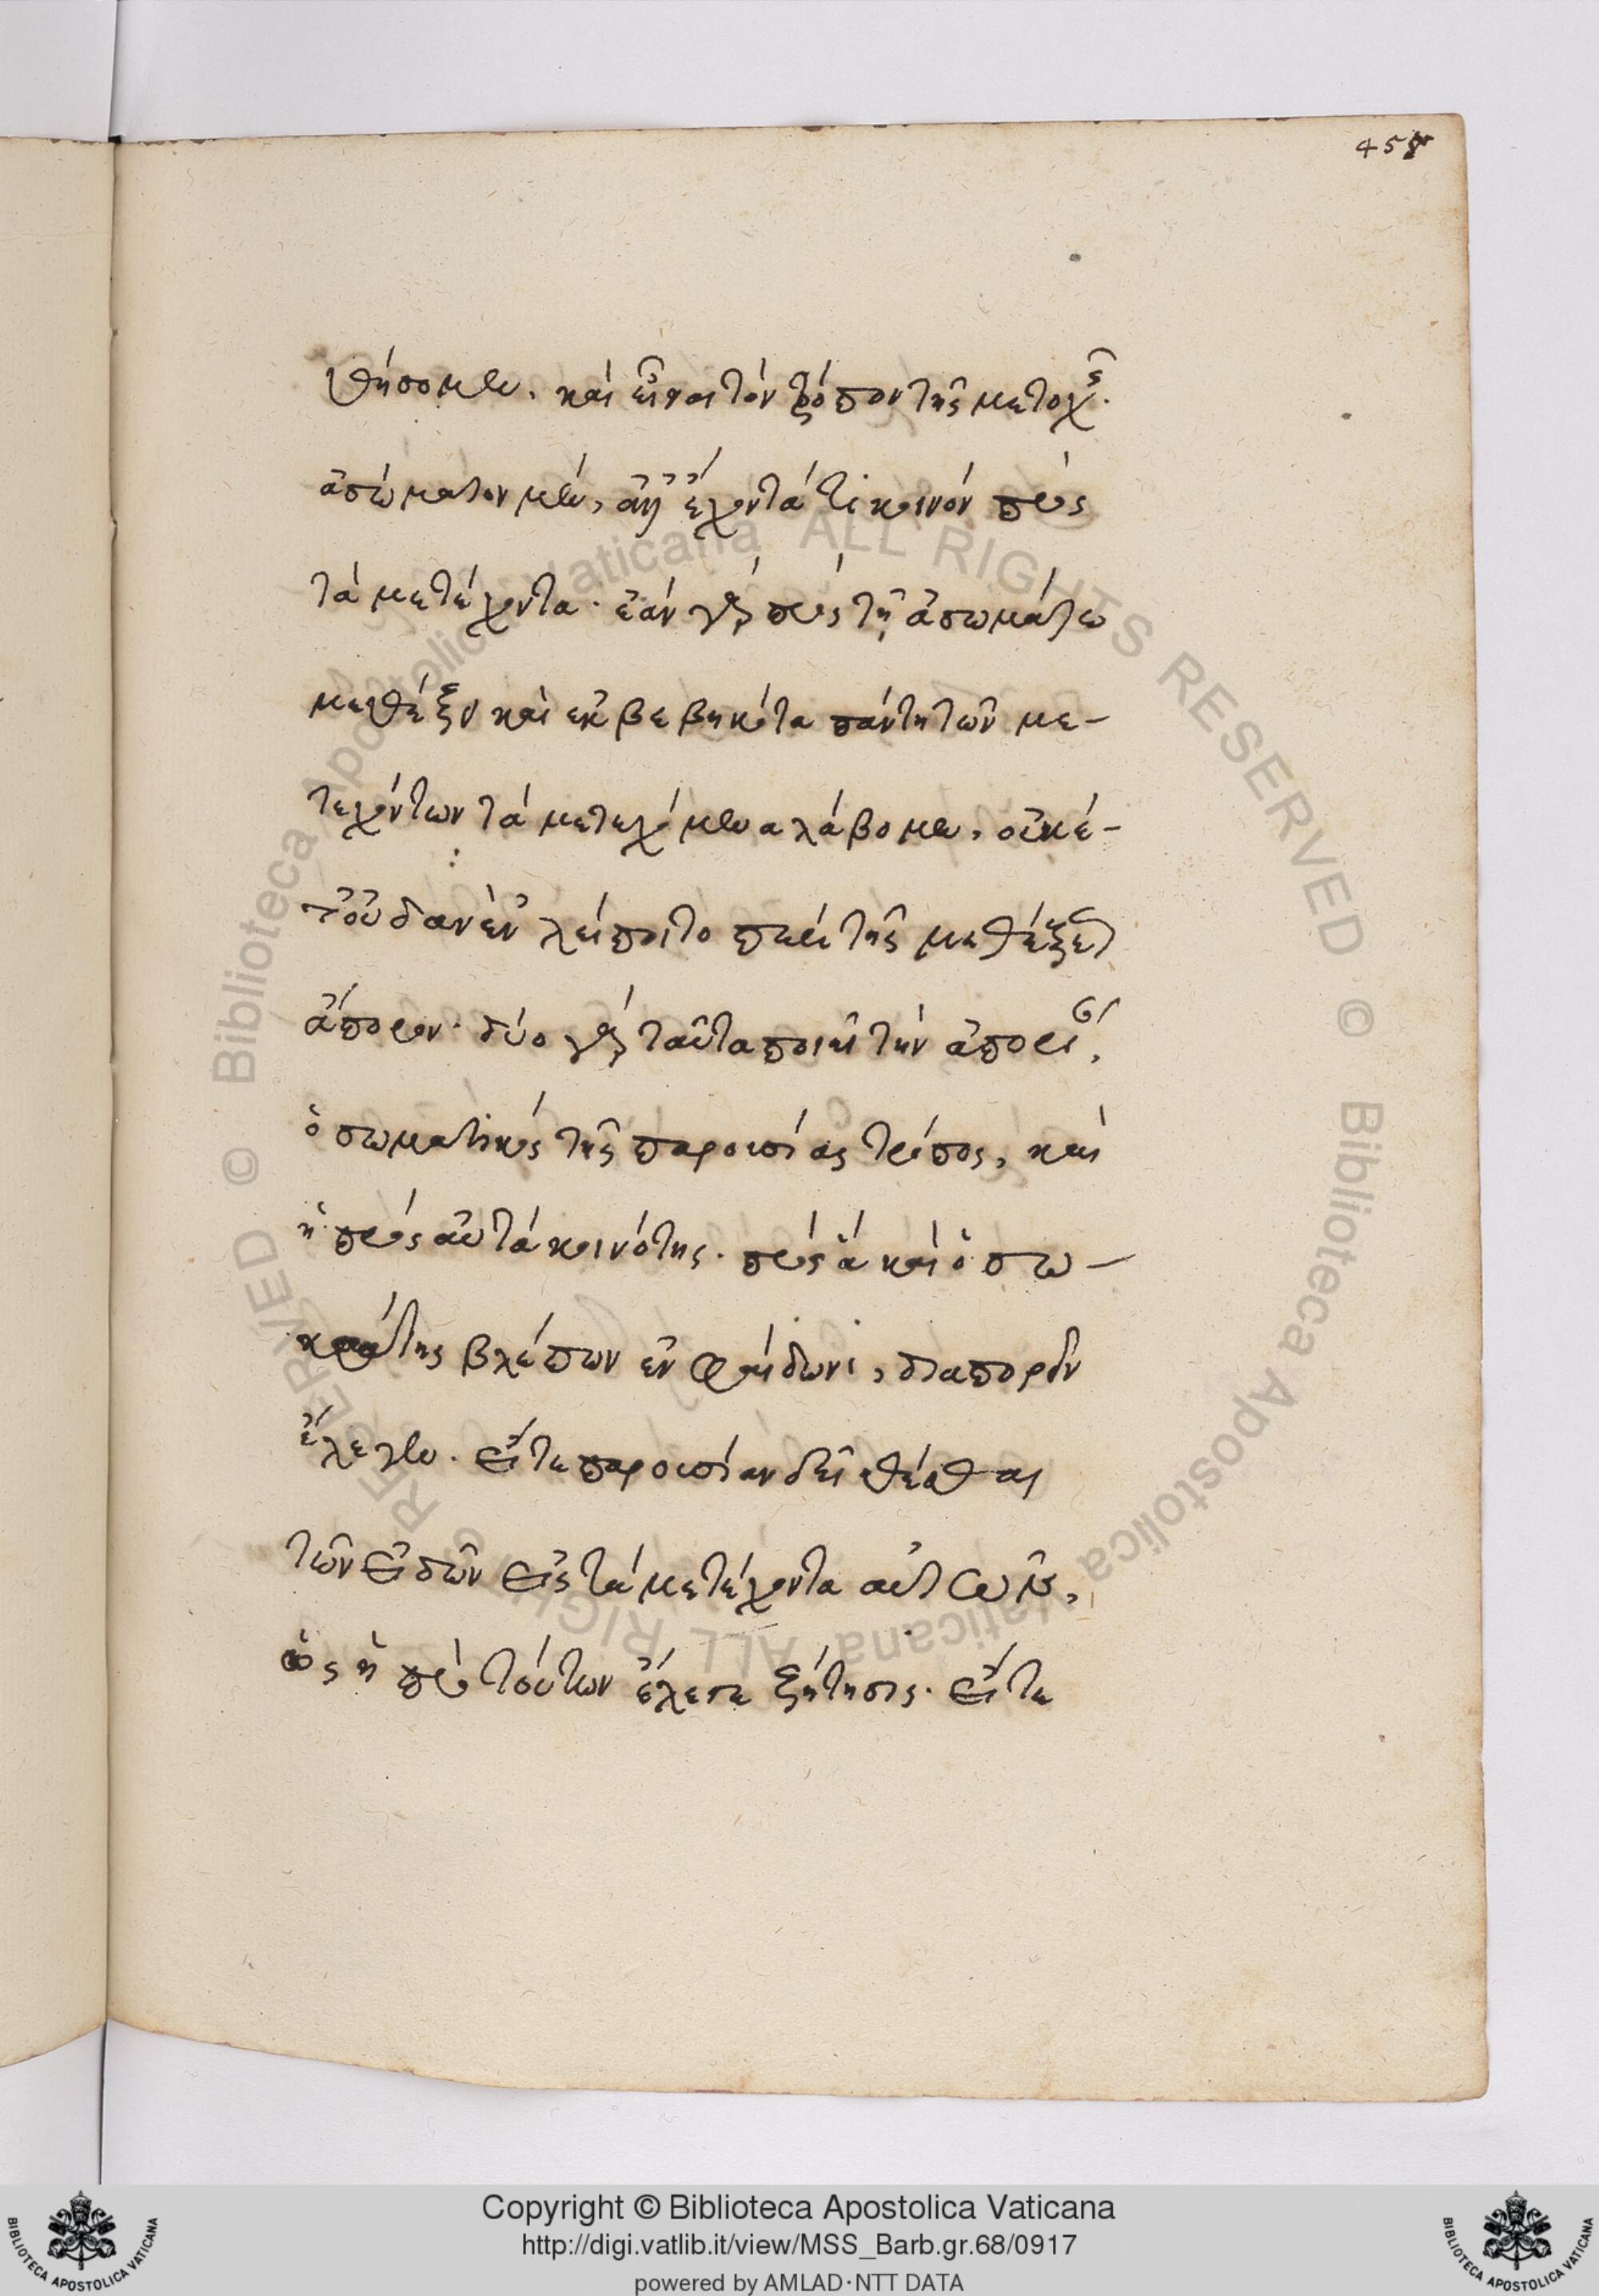 458
θήσομεν. καὶ εἶναι τὸν τρόπον τῆς μετοχῆς.
ἀσώματον μέν, ἀντέχοντά τι κοινὸν πρὸς
τὰ μετέχοντα. ἐὰν γὰρ πρὸς τῇ ἀσωμάτω
μεθέξει καὶ ἐκβεβηκότα πάντη τῶν με-
τεχόντων τὰ μετεχόμενα λάβομεν, οὐκέ-
τ' οὐδ ἂν ἐν λείποιτο περὶ τῆς μεθέξεως
ἄπορον. δύο γὰρ ταῦτα ποιεῖ τὴν ἀπορίαν,
ὁ σωματικὸς τῆς παρουσίας τρόπος, καὶ
ἡ πρὸς αὐτὰ κοινότης. πρὸς ἃ καὶ ὁ σω-
κράτης βλέπων ἐν φαίδωνι, διαπορῶν
ἔλεγεν. εἴτε παρουσίαν δεῖ θέσθαι
τῶν εἰδῶν εἰς τὰ μετέχοντα αὐτῶν,
ὡς ἡ πρὸ τούτων ἔλεγε ζήτησις. εἴτε
Copyright © Biblioteca Apostolica Vaticana
http://digi.vatlib.it/view/MSS_Barb.gr.68/0917
powered by AMLAD·NTT DATA
BIBLIOTECA APOSTOLICA VATICANA
BIBLIOTECA APOSTOLICA VATICANA
© Biblioteca Apostolica Vaticana ALL RIGHTS RESERVED
© Biblioteca Apostolica Vaticana ALL RIGHTS RESERVED